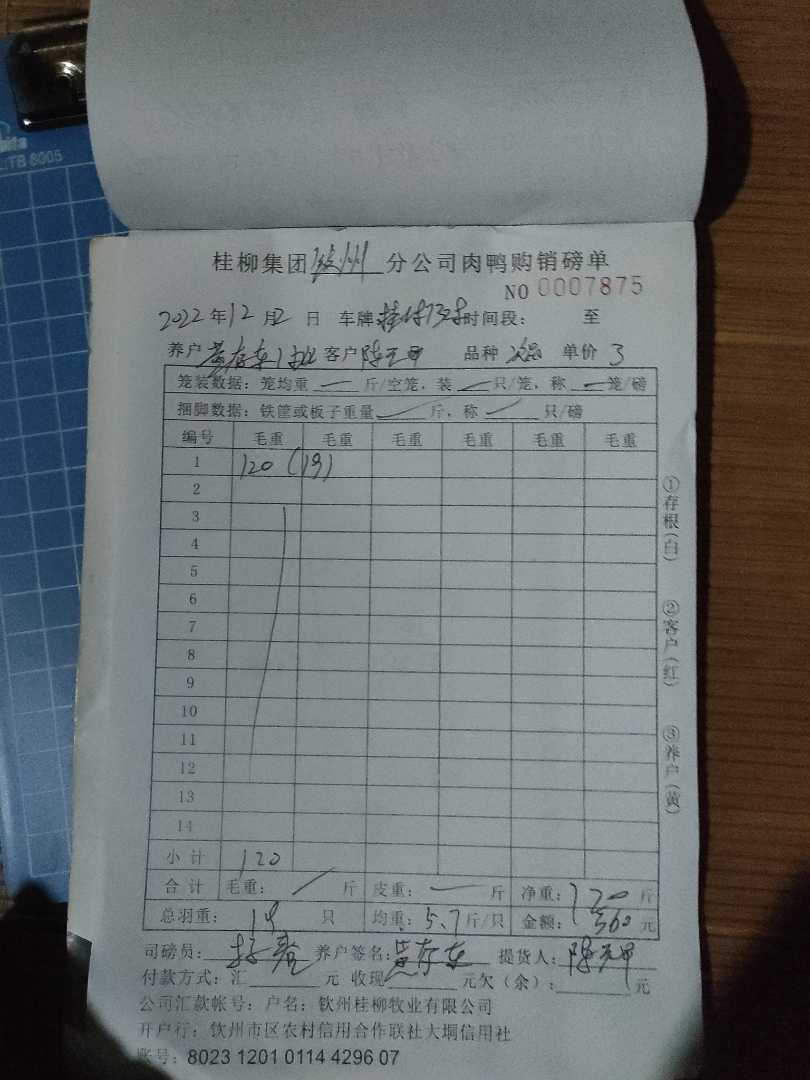 TB 8005
桂柳集团 钦州 分公司肉鸭购销磅单
NO 0007875
2022 年 12 月 2 日 车牌 时间段： 至
养户 黄存东 客户 陈元甲 品种 次品 单价 3
笼装数据：笼均重 — 斤/空笼，装 — 只/笼，称 — 笼/磅
捆脚数据：铁筐或板子重量 — 斤，称 — 只/磅
编号 毛重 毛重 毛重 毛重 毛重 毛重
1 120 (19)
2
3
4
5
6
7
8
9
10
11
12
13
14
小计 120
合计 毛重： / 斤 皮重： — 斤 净重： 120 斤
总羽重： 19 只 均重： 5.7 斤/只 金额： 360 元
司磅员： 养户签名： 黄存东 提货人： 陈元甲
付款方式：汇 元 收现 元欠（余）： 元
公司汇款帐号：户名：钦州桂柳牧业有限公司
开户行：钦州市区农村信用合作联社大垌信用社
账号：8023 1201 0114 4296 07
①存根(白) ②客户(红) ③养户(黄)